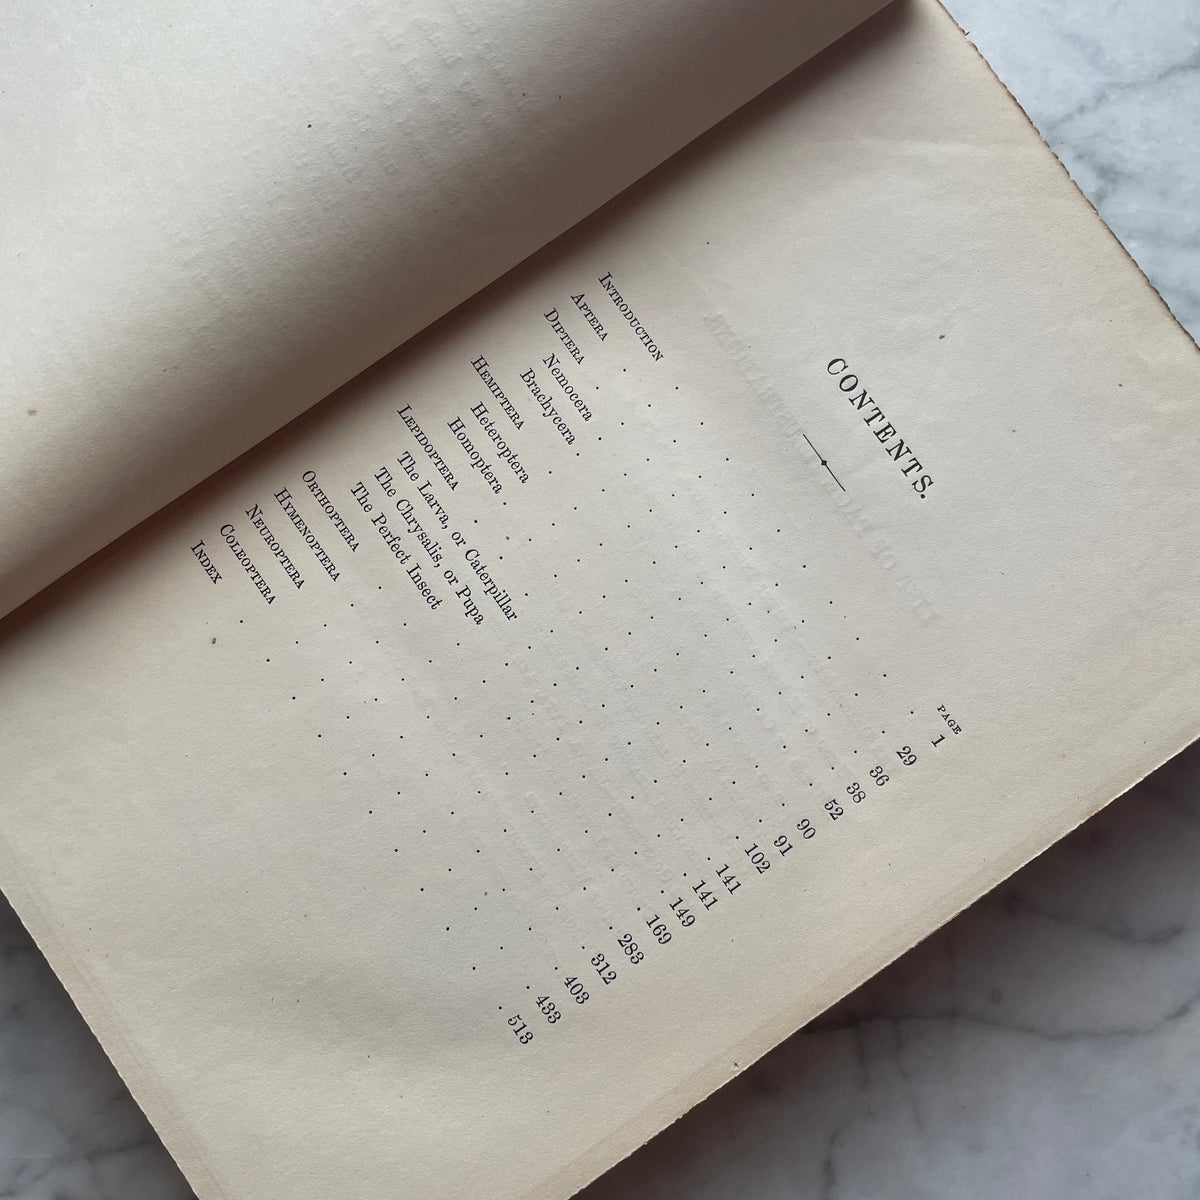 CONTENTS.
PAGE
INTRODUCTION . . . . . . . . . . 1
APTERA . . . . . . . . . . . 29
DIPTERA . . . . . . . . . . . 36
Nemocera . . . . . . . . . . 38
Brachycera . . . . . . . . . . 52
HEMIPTERA . . . . . . . . . . 90
Heteroptera . . . . . . . . . . 91
Homoptera . . . . . . . . . . 102
LEPIDOPTERA . . . . . . . . . . 141
The Larva, or Caterpillar . . . . . . . 141
The Chrysalis, or Pupa . . . . . . . . 149
The Perfect Insect . . . . . . . . 169
ORTHOPTERA . . . . . . . . . . 283
HYMENOPTERA . . . . . . . . . . 312
NEUROPTERA . . . . . . . . . . 403
COLEOPTERA . . . . . . . . . . 433
INDEX . . . . . . . . . . . 513